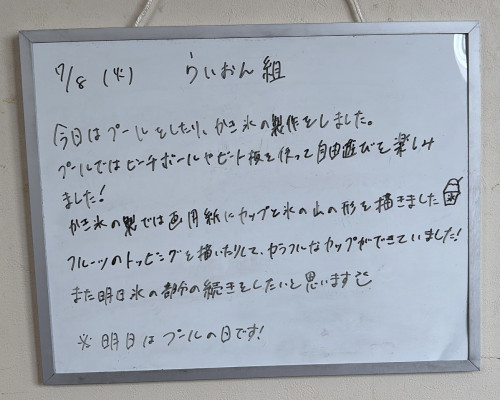 7/8 (火) らいおん組
今日はプールをしたり、かき氷の製作をしました。
プールではビーチボールやビート板を使って自由遊びを楽しみ
ました!
かき氷の製では画用紙にカップと氷の山の形を描きました
フルーツのトッピングを描いたりして、カラフルなカップができていました!
また明日氷の部分の続きをしたいと思います
※明日はプールの日です!